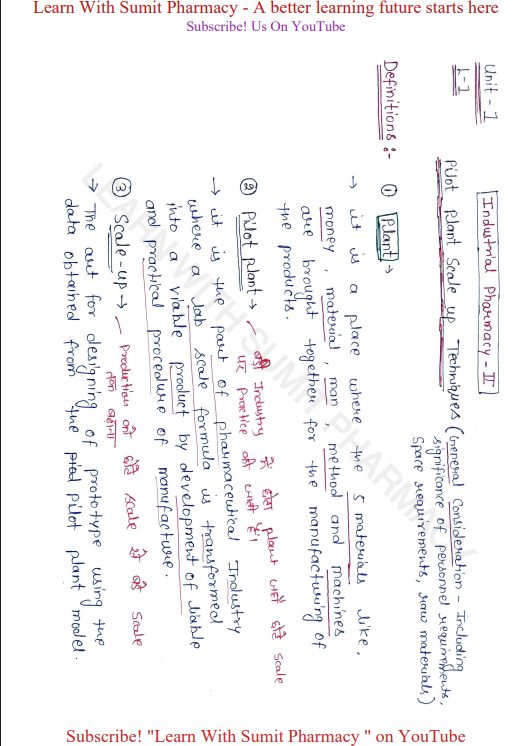 Learn With Sumit Pharmacy - A better learning future starts here
Subscribe! Us On YouTube
Industrial Pharmacy - II
Unit - 1
L-1
Pilot plant Scale up Techniques (General Consideration - Including
significance of personnel requirements,
Space requirements, raw materials)
Definitions :-
① Plant →
→ it is a place where the 5 materials like,
money, material, man, method and machines
are brought together for the manufacturing of
the products.
② Pilot plant → – Industry के plant जहाँ छोटे scale
पर practice की जाती है।
→ it is the part of pharmaceutical Industry
where a lab scale formula is transformed
into a viable product by development of liable
and practical procedure of manufacture.
③ Scale-up → – Production को छोटे scale से बड़े scale
तक बढ़ाना
→ The art for designing of prototype using the
data obtained from the pilot plant model.
LEARN WITH SUMIT PHARMACY
Subscribe! "Learn With Sumit Pharmacy " on YouTube